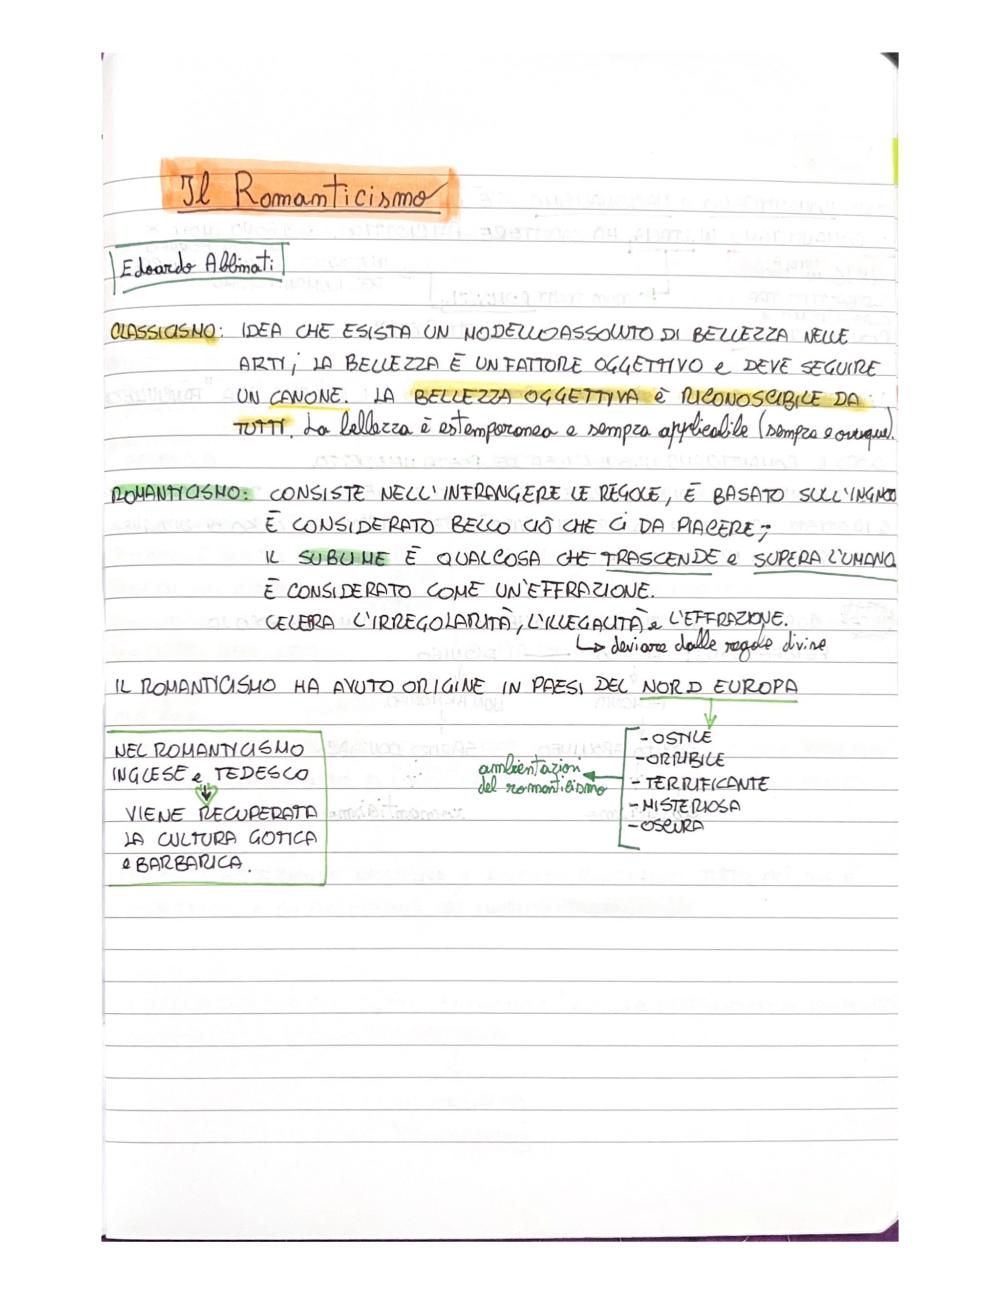 Il Romanticismo
Edoardo Albinati
CLASSICISMO: IDEA CHE ESISTA UN MODELLO ASSOLUTO DI BELLEZZA NELLE
ARTI; LA BELLEZZA È UN FATTORE OGGETTIVO e DEVE SEGUIRE
UN CANONE. LA BELLEZZA OGGETTIVA È RICONOSCIBILE DA
TUTTI. La bellezza è estemporanea e sempre applicabile (sempre e ovunque).
ROMANTICISMO: CONSISTE NELL'INFRANGERE LE REGOLE, È BASATO SULL'
È CONSIDERATO BELLO CIÒ CHE CI DA PIACERE;
IL SUBLIME È QUALCOSA CHE TRASCENDE e SUPERA L'UMANO
È CONSIDERATO COME UN'EFFRAZIONE.
CELEBRA L'IRREGOLARITÀ, L'ILLEGALITÀ e L'EFFRAZIONE.
↳ deviare dalle regole divine
IL ROMANTICISMO HA AVUTO ORIGINE IN PAESI DEL NORD EUROPA
NEL ROMANTICISMO
INGLESE e TEDESCO
VIENE RECUPERATA
LA CULTURA GOTICA
e BARBARICA.
- OSTILE
- ORRIBILE
- TERRIFICANTE
- MISTERIOSA
- OSCURA
ambientazioni
del romanticismo